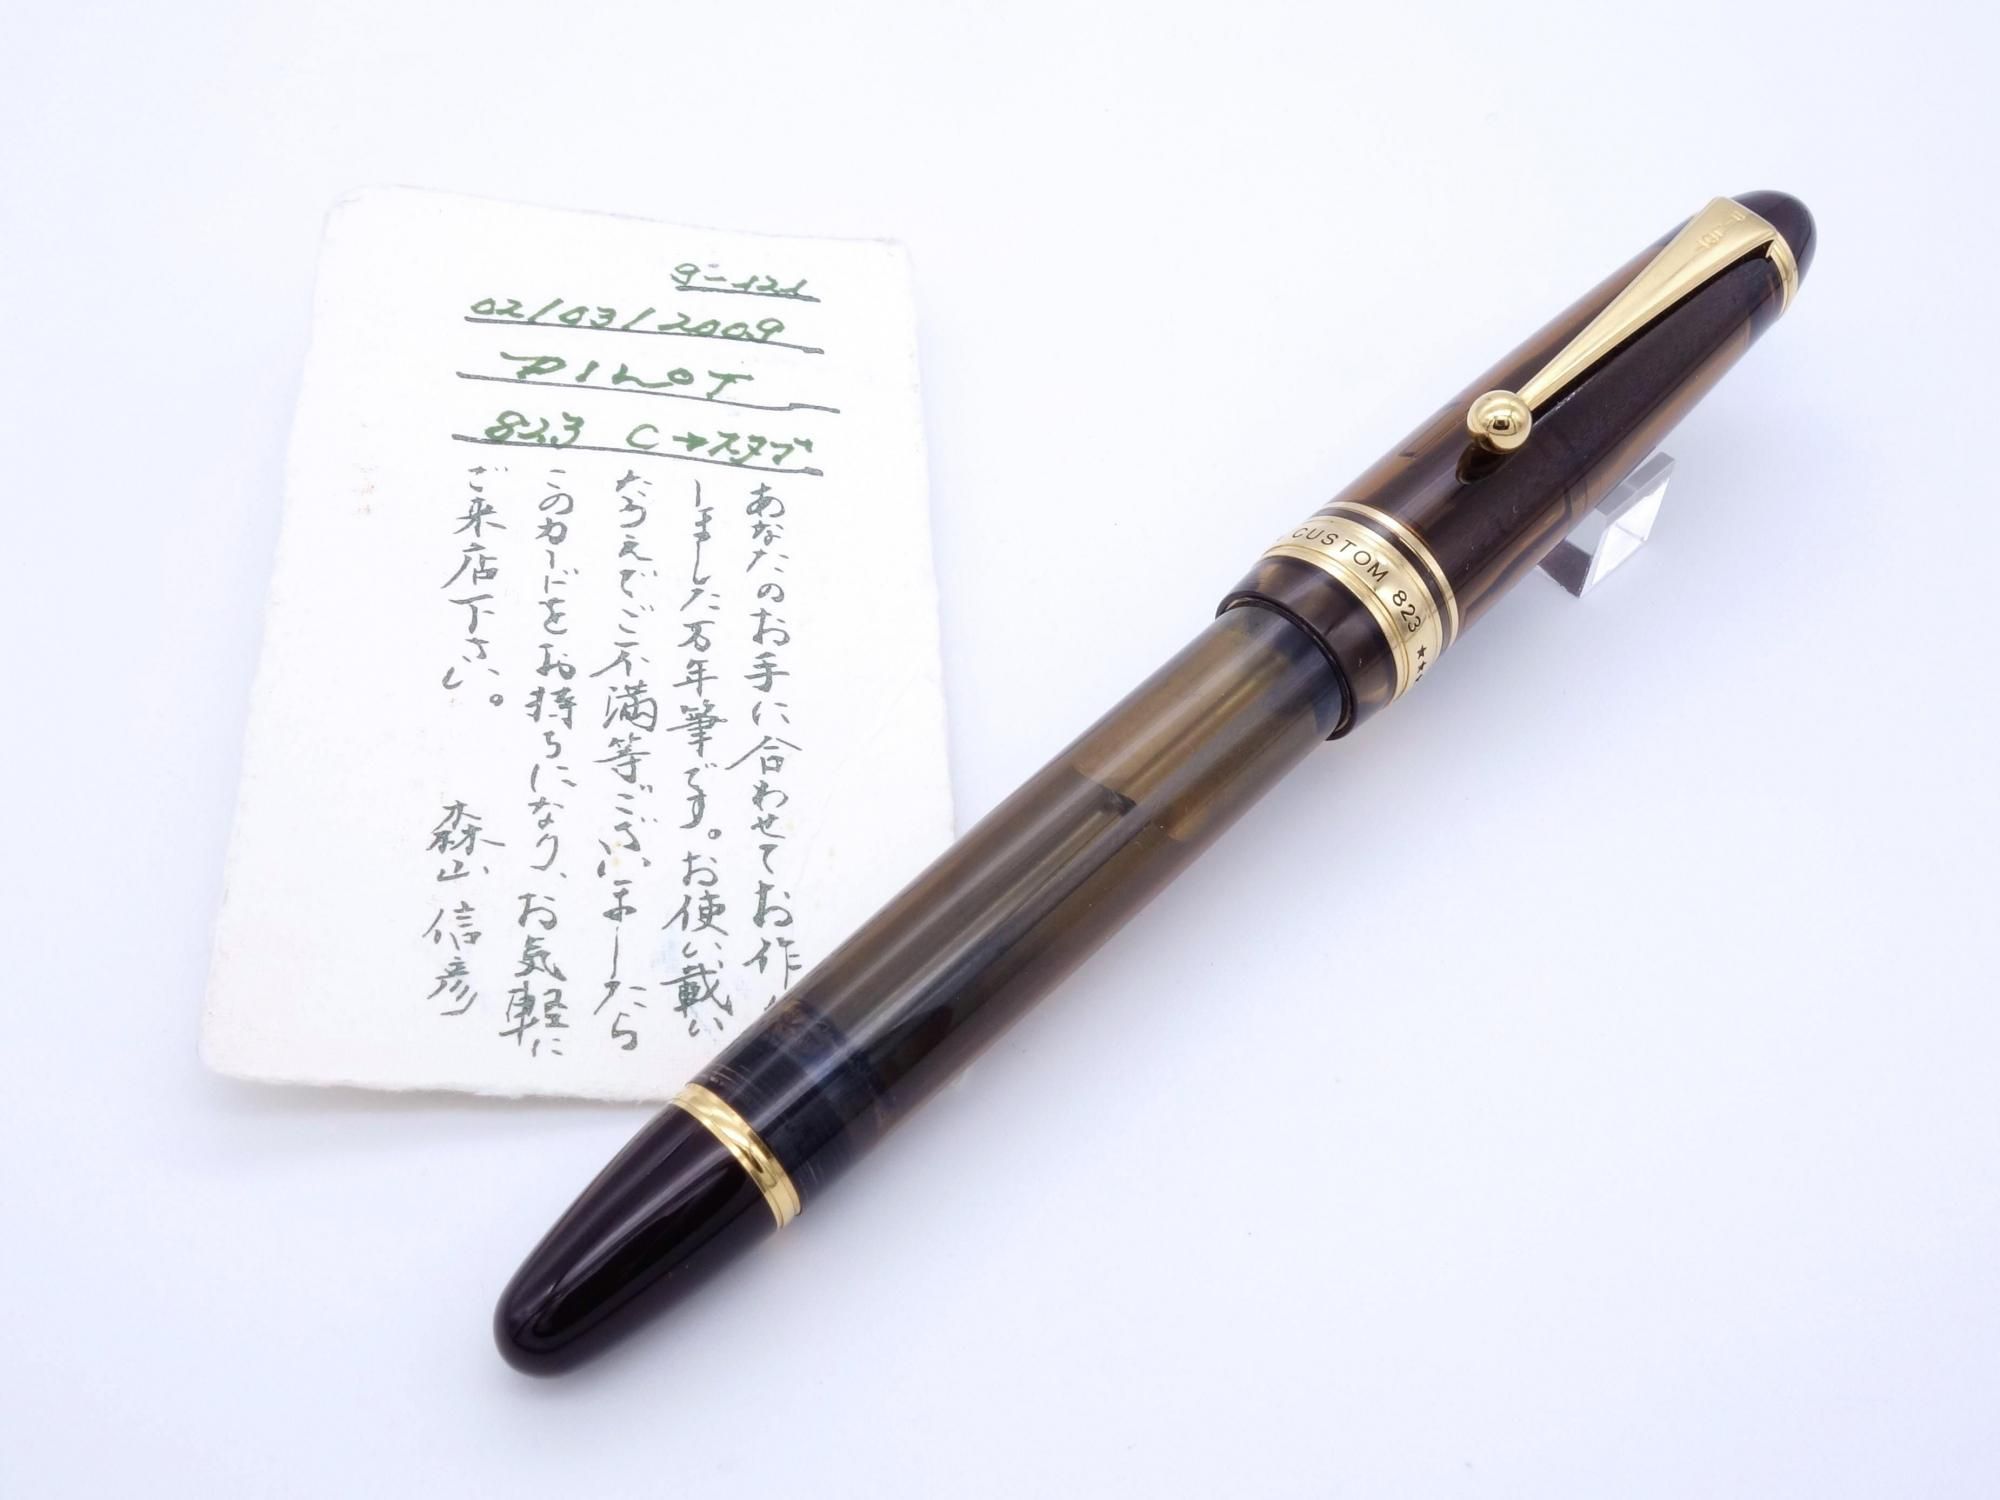 9-121
02/03/2009
PILOT
823 C→スタブ
あなたのお手に合わせてお作り
しました万年筆です。お使い載い
たうえでご不満等ございましたら
このカードをお持ちになり、お気軽に
ご来店下さい。
森山 信彦
CUSTOM 823 ★★